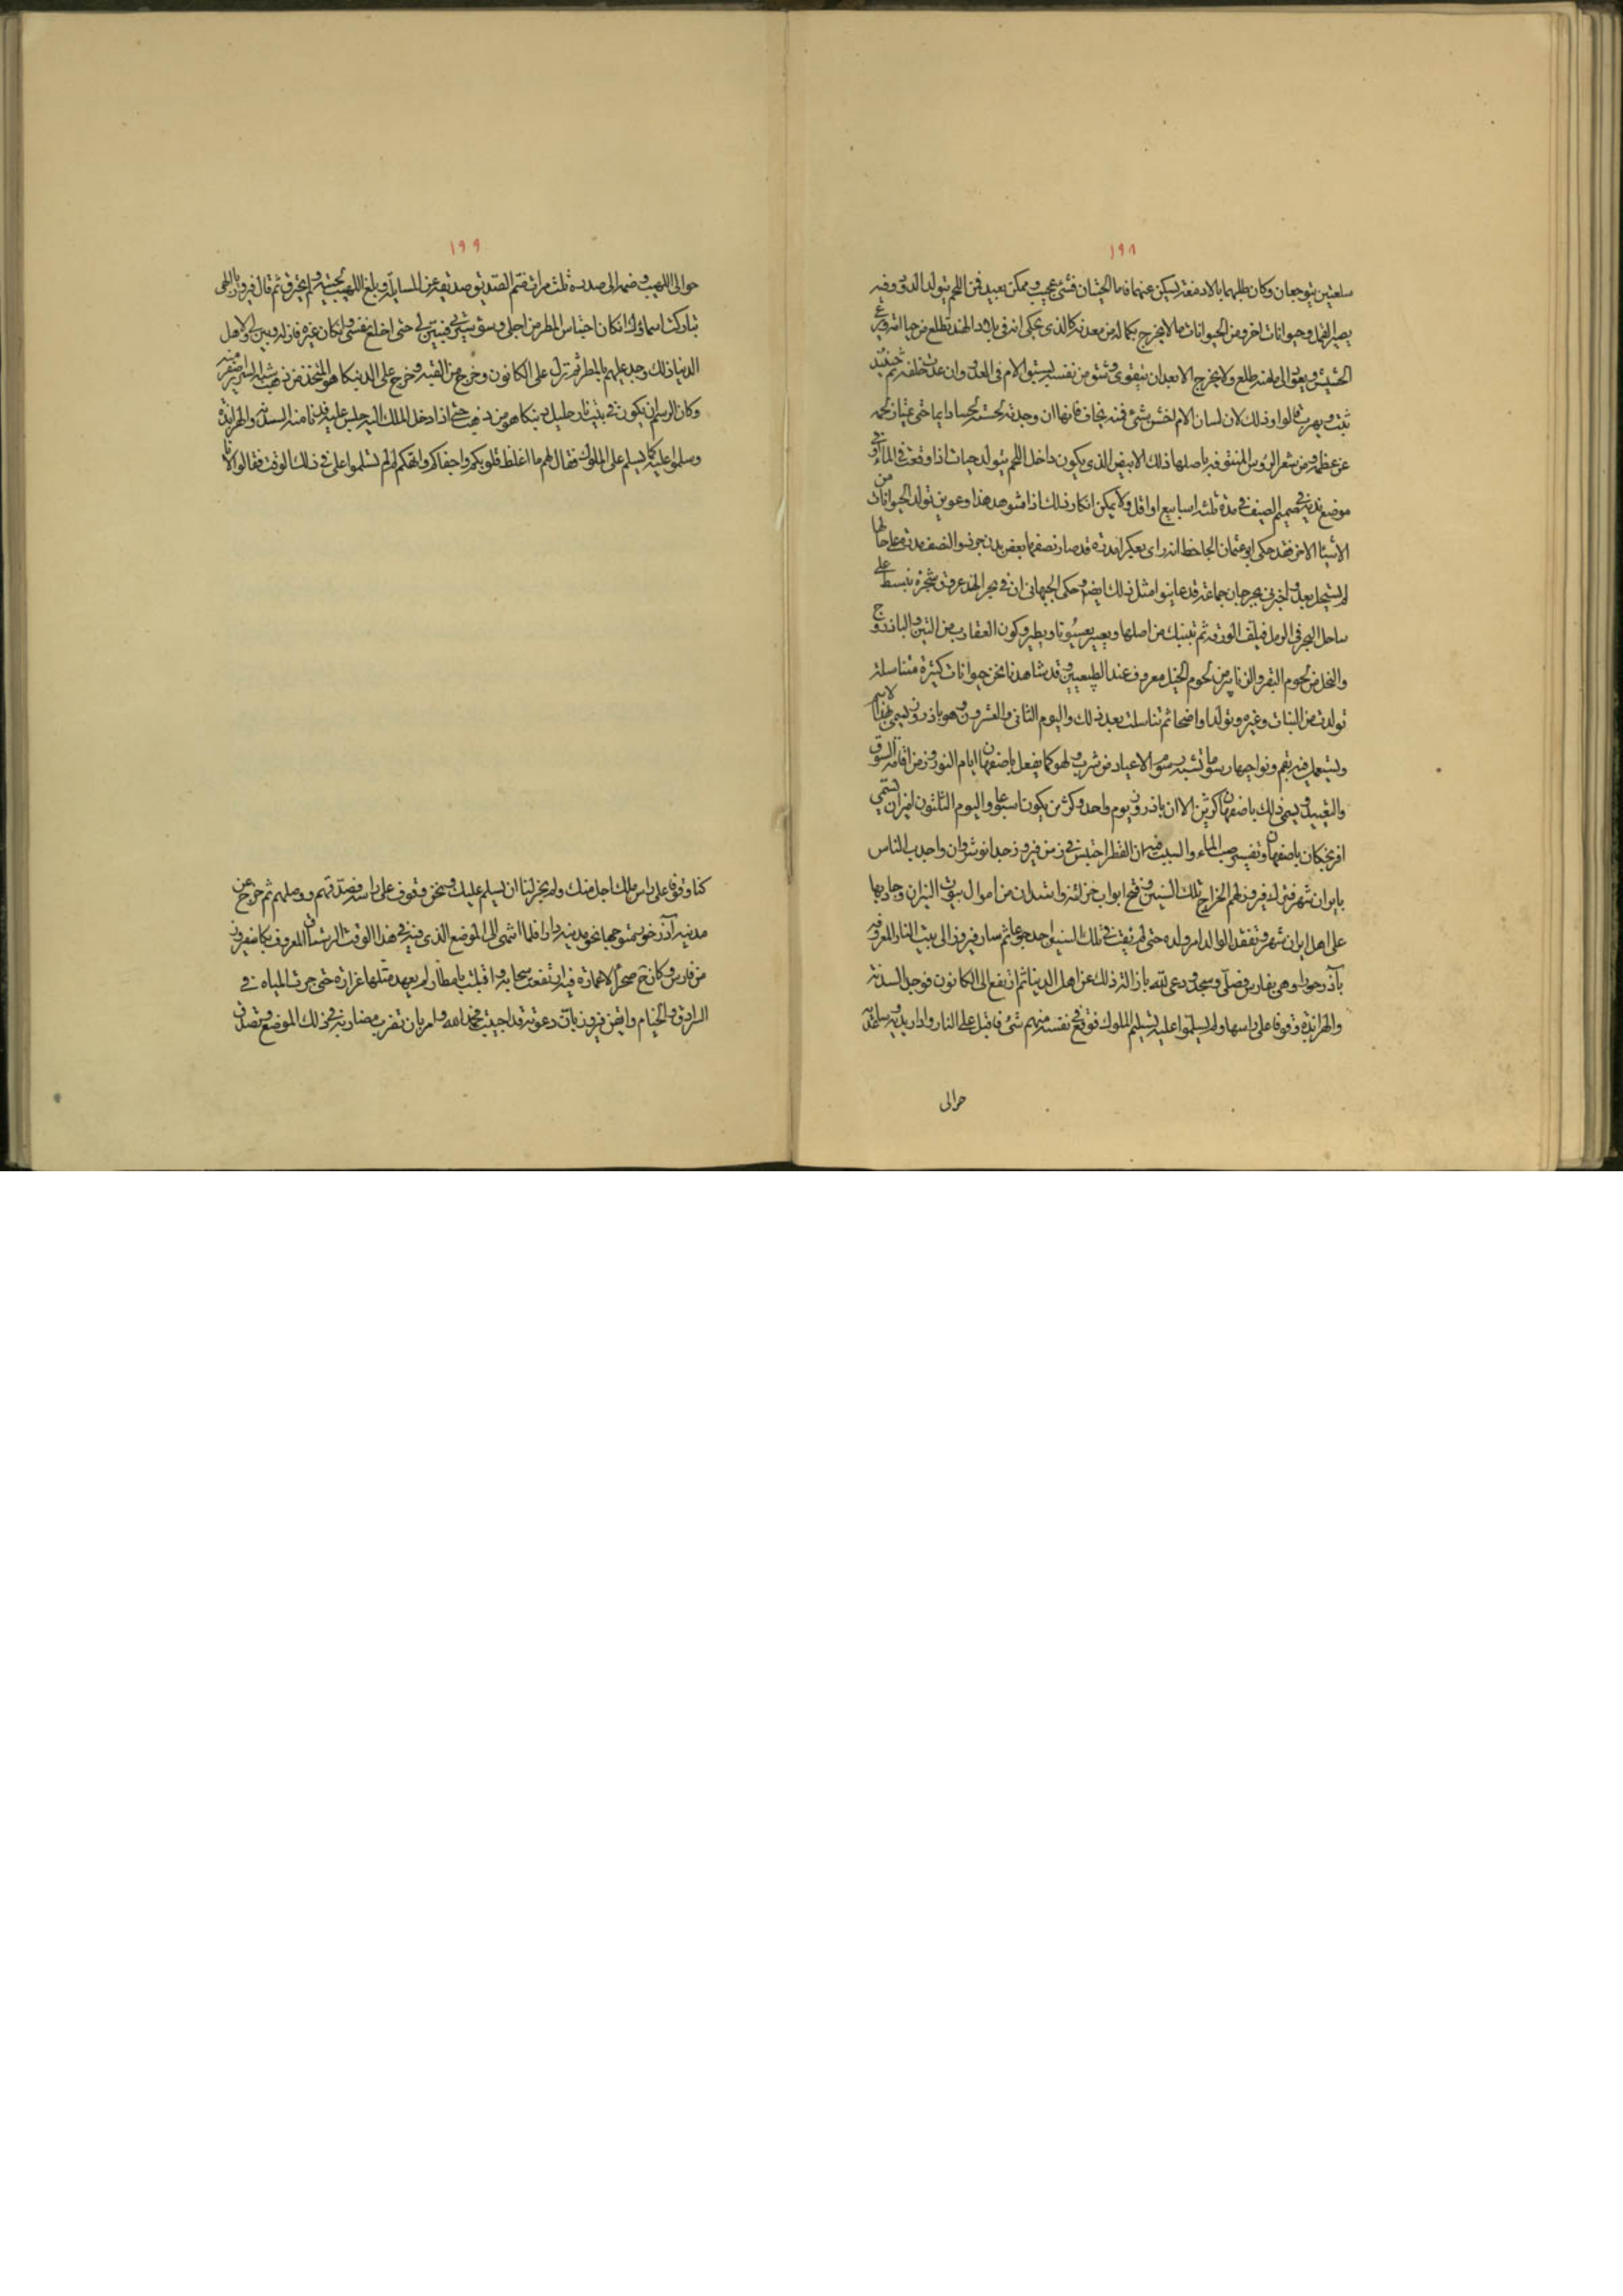 ١٩٨
سلعتين يتوجعان وكان طلبهما بالادمغة ليسكن عنهما فاما الحيتان فشئ عجيب وممكن بعيد فمن اللحم يتولد الدود وفيه
يصير القمل وحيوانات اخر ومن الحيوانات ما لا يخرج بكماله من معدنه كالذى يحكى انه فى بلاد الهند يطلع من حيا امه ويرعى
الحشيش ويعود الى بطنه يطلع ولا يخرج الا بعد ان يتقوى ويثق من نفسه بسبق الام فى العدو وان عدت خلفه ثم حينئذ
يثب ويهرب قالوا وذلك لان لسان الام اخشن شئ فمنه يخاف فانها ان وجدته لحسته لحسا دايما حتى يتماز لحمه
عن عظمه ومن شعر الروس المنتوف فيه باصلها ذلك الابيض الذى يكون داخل اللحم يتولد حيات اذا وقعت فى الماء او فى
موضع ندى فى صميم الصيف فى مدة ثلثه اسابيع او اقل ولا يمكن انكار ذلك اذا شوهد هذا وعوين تولد الحيوانات من
الاشيا الاخر فقد حكى ابو عثمان الجاحظ انه راى بعكبرا مدرة قد صار نصفها بعض بدن جرذ والنصف مدرة على حالها
لم يستحل بعد واخبرنى بجرجان جماعة قد عاينوا مثل ذلك ايضا وحكى الجيهانى ان فى بحر الهند عروق شجرة ينبسط على
ساحل البحر فى الرمل فيلف الورقة ثم تنبتك من اصلها ويصير يعسوبا ويطير وكون العقارب من التين والباذروج
والنحل من لحوم البقر والزنابير من لحوم الخيل معروف عند الطبيعيين وقد شاهدنا نحن حيوانات كثيرة متناسلة
تولدت من النبات وغيره وتولدا واضحا ثم تناسلت بعد ذلك واليوم الثانى والعشرون وهو باذروز يسمى بهذا الاسم
ويستعمل فيه بقم ونواحيها رسوما تشبه رسوم الاعياد من شرب ولهو كما يفعل باصفهان ايام النوروز من اقامة السوق
والتعييد ويسمى ذلك باصفهان كژين الا ان باذروز يوم واحد وكژين يكون اسبوعا واليوم الثلثون انيران يسمى
افريجكان باصفهان وتفسيره صب الماء والسبب فيه ان القطر احتبس فى زمن فيروز جد انوشروان واجدب الناس
بايران شهر فترك فيروز لهم الخراج تلك السنين وفتح ابواب خزائنه واستدان من اموال بيوت النيران وجاد بها
على اهل ايران شهر وتفقد الوالد امر ولده حتى لم يفت فى تلك السنين احد جوعا ثم سار فيروز الى بيت النار المعروف
بآذرخورا وهى بفارس فصلى وسجد ودعى لله بازالة ذلك عن اهل الدنيا ثم ارتفع الى الكانون فوجد السدنة
والهرابذة وقوفا على راسها ولم يسلموا عليه تسليم الملوك فوقع فى نفسه منهم شئ فاقبل على النار وادار يده وساعده
حوالى
١٩٩
حوالى اللهيب وضمها الى صدره ثلث مرات ضم الصديق صديقه عن المسايلة وبلغ اللهيب لحيته ولم يحترق ثم قال فيروز يا الهى
تباركت اسماؤك ان كان احتباس المطر من اجلى وسؤ سيرتى فبين لى حتى اخلع نفسى وان كان غيره فازله وبين لى ولاهل
الدنيا ذلك وجد عليهم بالمطر ثم نزل على الكانون وخرج من القبه وخرج على الدنبكا هو المتخذ من ذهب شبه السرير اصغر منه
وكان الرسم ان يكون فى بيت نار جليل دنبكا هو من ذهب حتى اذا دخل الملك اليه جلس عليه فدنا منه السدنه والهرابذه
وسلموا عليه كما يسلم على الملوك فقال لهم ما اغلظ قلوبكم واجفاكم وانهكم لم لم تسلموا على فى ذلك الوقت فقالوا لانا
كنا وقوفا على راس ملك اجل منك ولم يجز لنا ان يسلم عليك ونحن وقوف على راسه فصدقهم ووصلهم ثم خرج عن
مدينه آذرخورا متوجها نحو مدينه دارا فلما انتهى الى الموضع الذى فيه فى هذا الوقت الرستاق المعروف بكامفيروز
من فارس وكان ثم صحرا لا عمارة فيه ارتفعت سحابة واقبلت بامطار لم يعهد مثلها غزارة حتى جرت المياه فى
السرادق والخيام وايقن فيروز بان دعوته قد اجيبت فحمد الله وامر بان تضرب مضاربه فى ذلك الموضع وتصدق